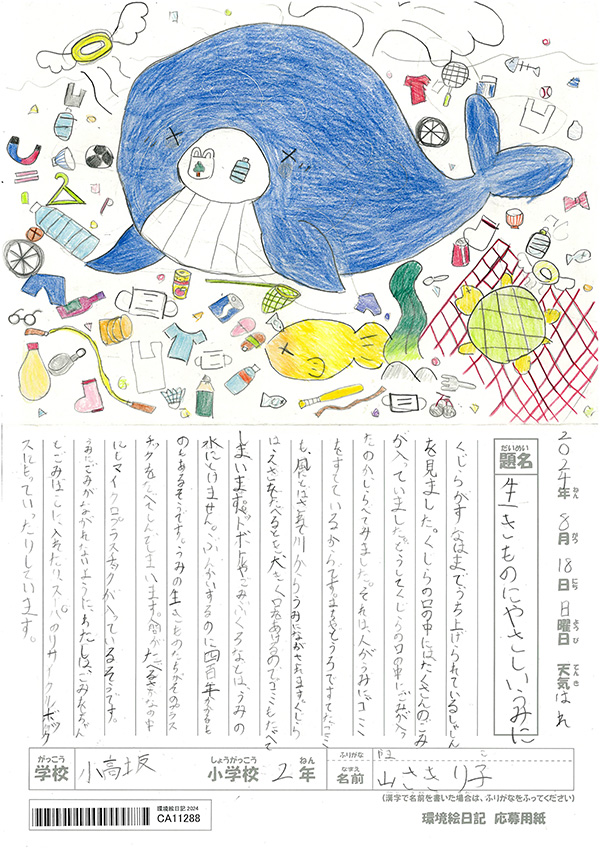 2024年 8月 18日 日曜日 天気 はれ
ねん がつ にち ようび てんき
だいめい
題名
生きものにやさしいうみに
くじらがすなはまでうち上げられているしゃしん
を見ました。くじらの口の中にはたくさんのごみ
が入っていました。どうしてくじらの口の中にごみが入っ
たのかしらべてみました。それは、人がうみにゴミ
をすてているからです。まちや
も、風にとばされて川からうみにながされます。くじら
はえさをたべるとき、大きく口をあけるのでゴミもたべて
しまいます。ペットボトルやごみぶくろなどは、うみの
水にとけません。ぶんかいするのに四百年かかるも
のもあるそうです。うみの生きものたちがそのプラス
チックをたべてしんでしまいます。人間がたべるさかなの中
にもマイクロプラスチックが入っているそうです。
うみにごみがながれないように、わたしは、ごみをちゃん
とごみばこに入れたり、スーパーのリサイクルボック
スにもっていったりしています。
がっこう
学校
小高坂
しょうがっこう
小学校
2
ねん
年
ふりがな
なまえ
名前
山さきり子
(漢字で名前を書いた場合は、ふりがなをふってください)
環境絵日記 2024
CA11288
環境絵日記 応募用紙